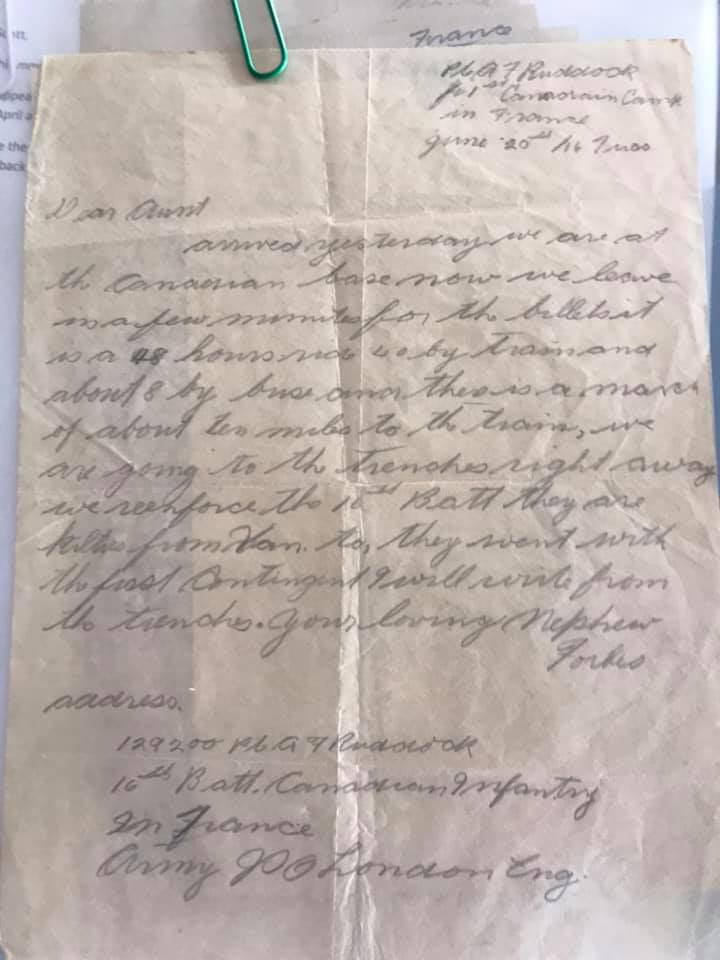 France
Pte A F Ruddock
1st Canadain Camp
in France
June 20th /16 Tues
Dear Aunt
arrived yesterday we are at
the Canadian base now we leave
in a few minutes for the billets it
is a 48 hours ride 40 by train and
about 8 by buse and thers is a march
of about ten miles to the train, we
are going to the trenches right away
we reenforce the 16th Batt they are
kilties from Van. to, they went with
the first Contingent I will write from
the trenches. Your loving Nephew
Forbes
address.
129200 Pte A F Ruddock
16th Batt. Canadian Infantry
In France
Army PO London Eng.